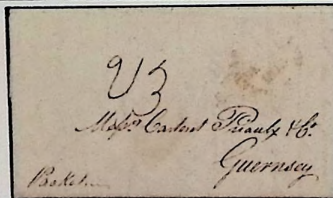 2/3
Messrs Carteret Priaulx & Co.
Guernsey
Packet